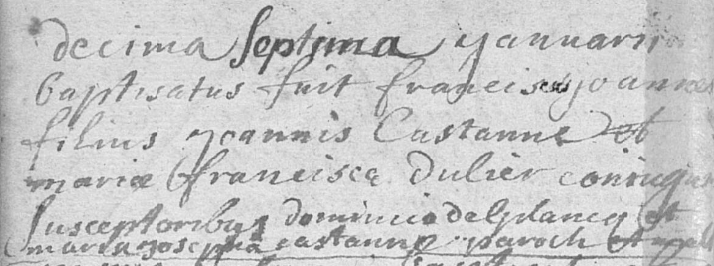 decima Septima yanuarii
baptisatus fuit franciscus joannes
filius yoannis Castanne et
mariæ francisca Dulier coniugum
Susceptoribus dominico Delplancq et
maria josepha castanne paroch et